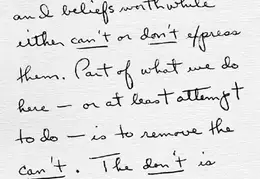 and beliefs worthwhile
either can't or don't express
them. Part of what we do
here — or at least attempt
to do — is to remove the
can't. The don't is